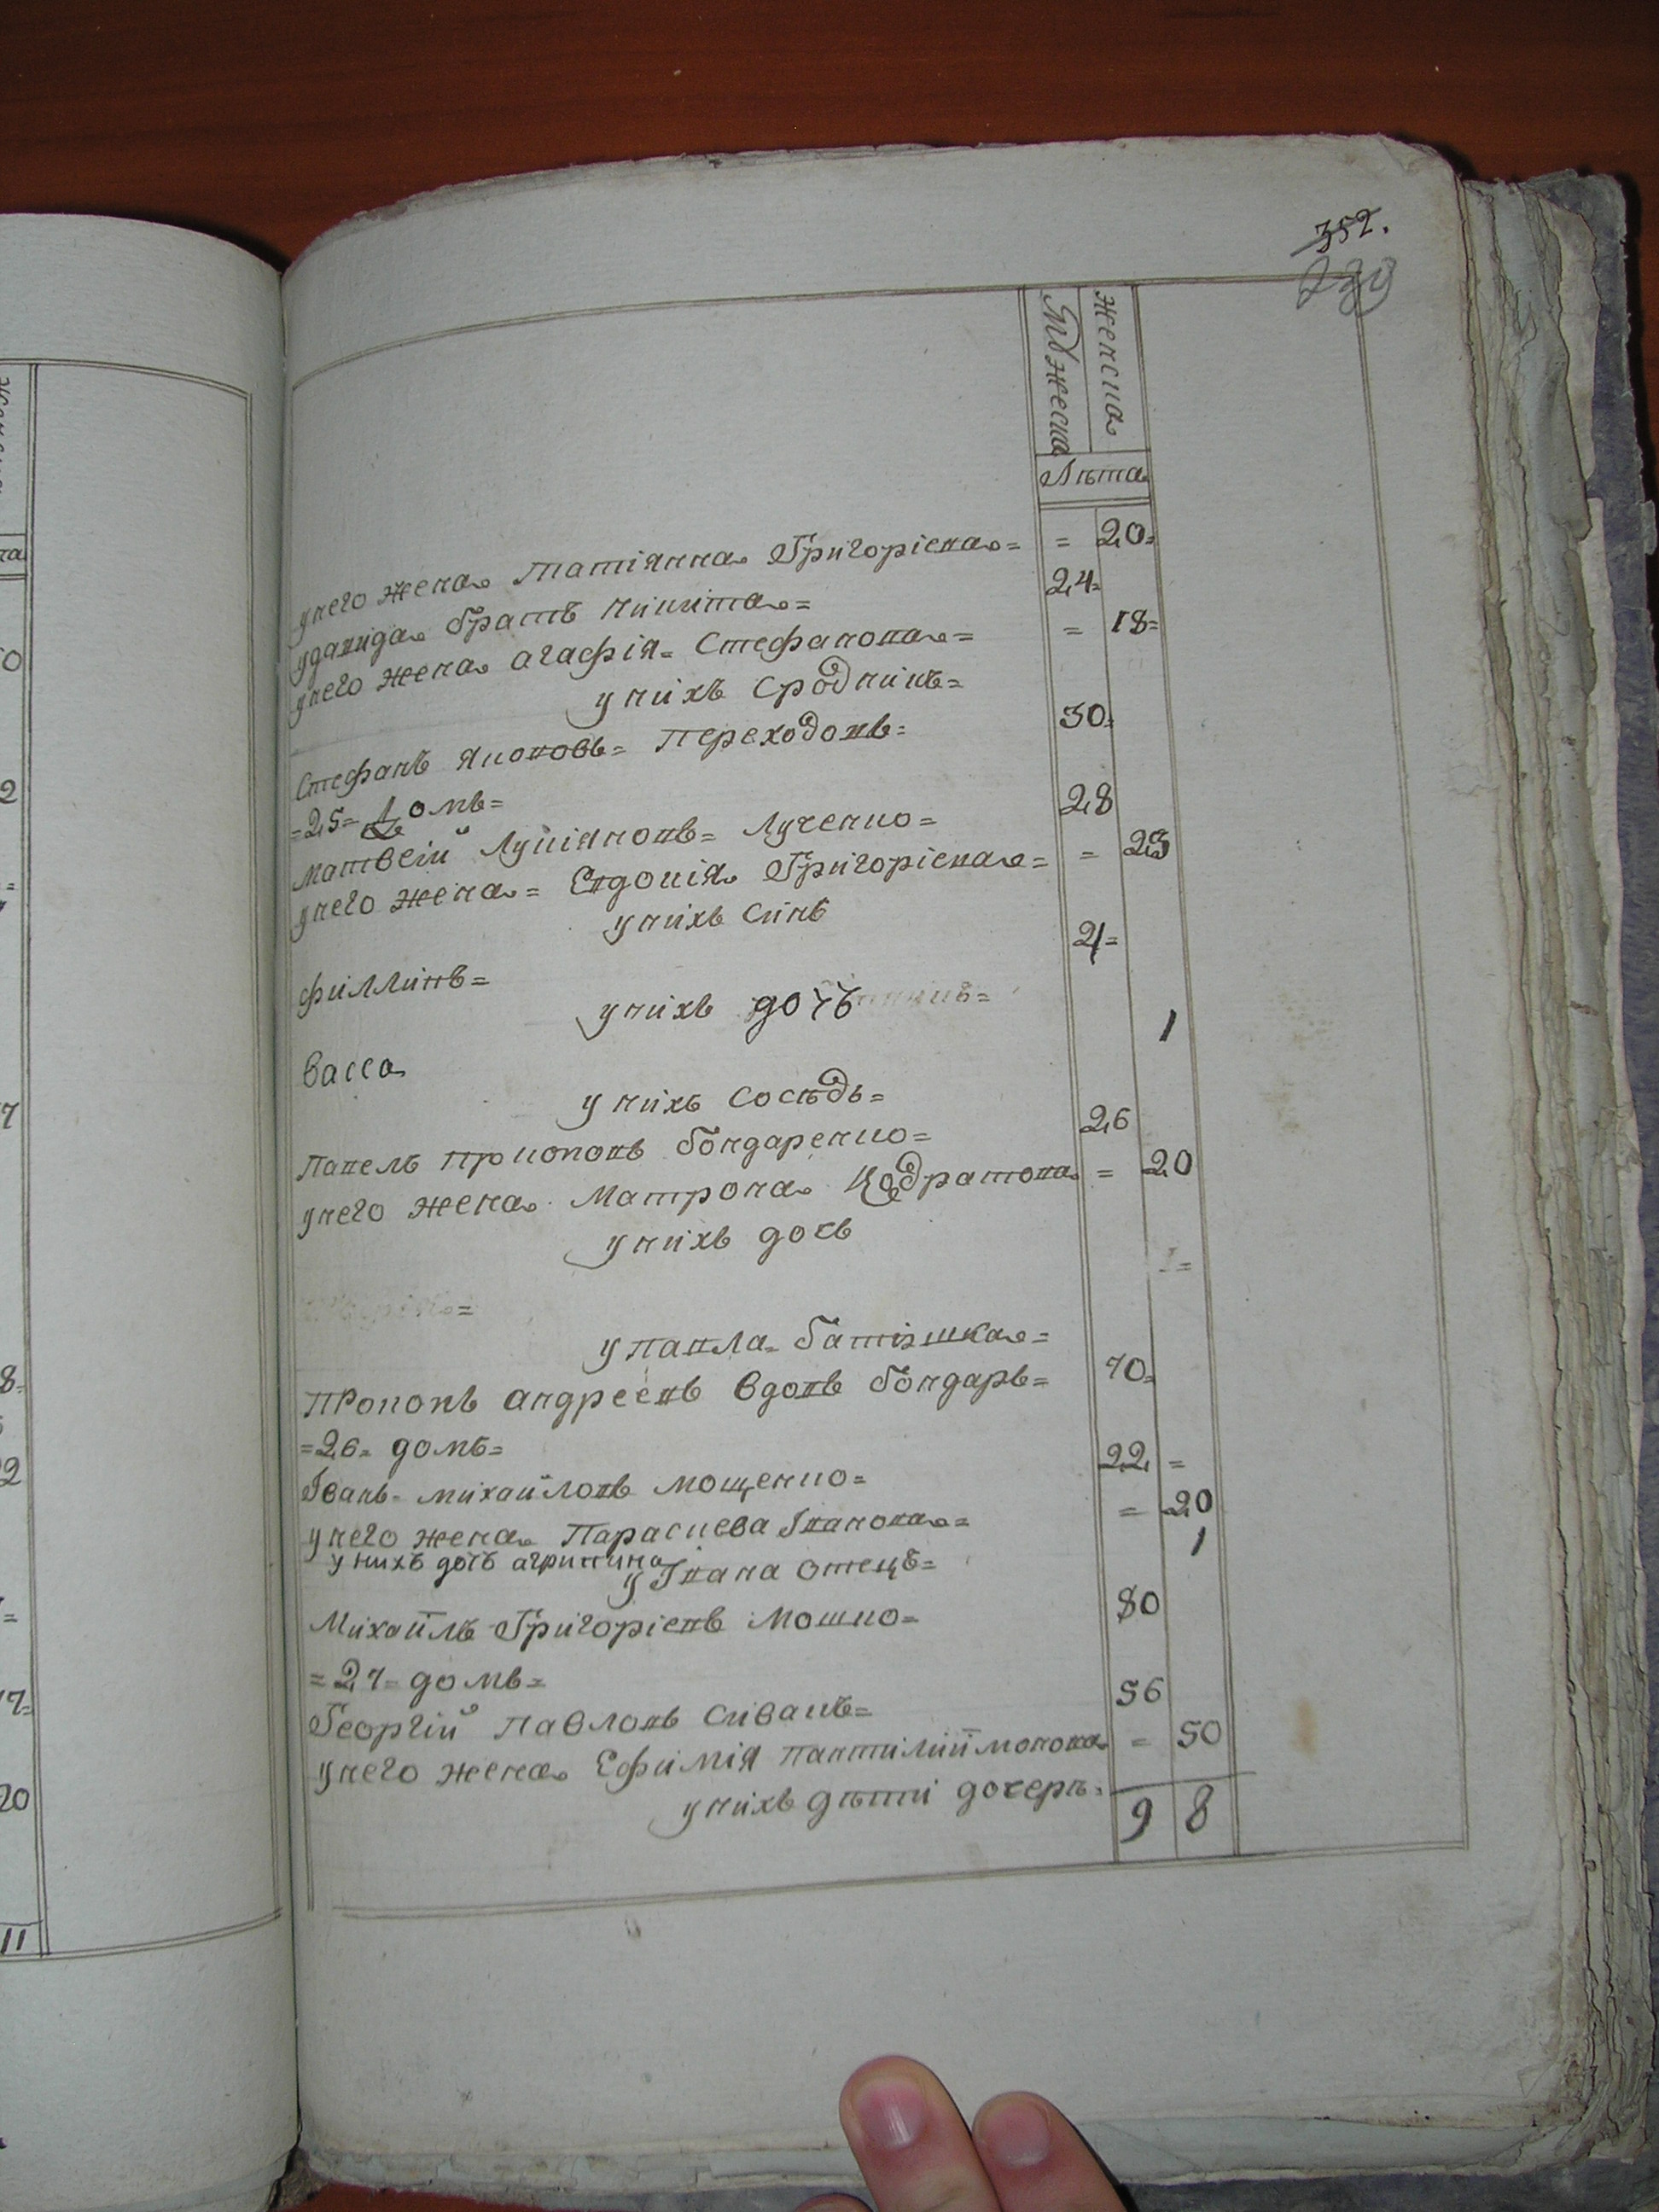 352.
239
мужеска
женска
Лѣта
унего жена Татіянна Григоріева = = 20 =
удавида братъ никита = 24 =
унего жена агафія = Стефанова = = 18 =
у нихъ сродникъ =
Стефанъ яковов = Переходовъ = 30 =
= 25 = домъ =
матвѣй Лукіяновъ = Лученко = 28
унего жена = Евдокія Григоріева = = 23
у нихъ синъ
филлипъ = 4 =
у нихъ дочъ
васса 1
у нихъ сосѣдъ =
Павелъ прокоповъ бондаренко = 26
унего жена матрона Кодратова = 20
у нихъ дочъ
1 =
у павла = батюшка =
прокопъ андреевъ вдовъ бондаръ = 70 =
= 26 = домъ =
Іванъ = михайловъ мощенко = 22 =
унего жена Парасцева Іванова = = 20
у нихъ дочъ агрипина 1
у Івана отецъ =
Михайлъ Григоріевъ мошко = 80
= 27 = домъ =
Георгій Павловъ сивакъ = 56
унего жена Ефимія пантилиймонова = 50
у нихъ дѣти дочерѣ =
9 8